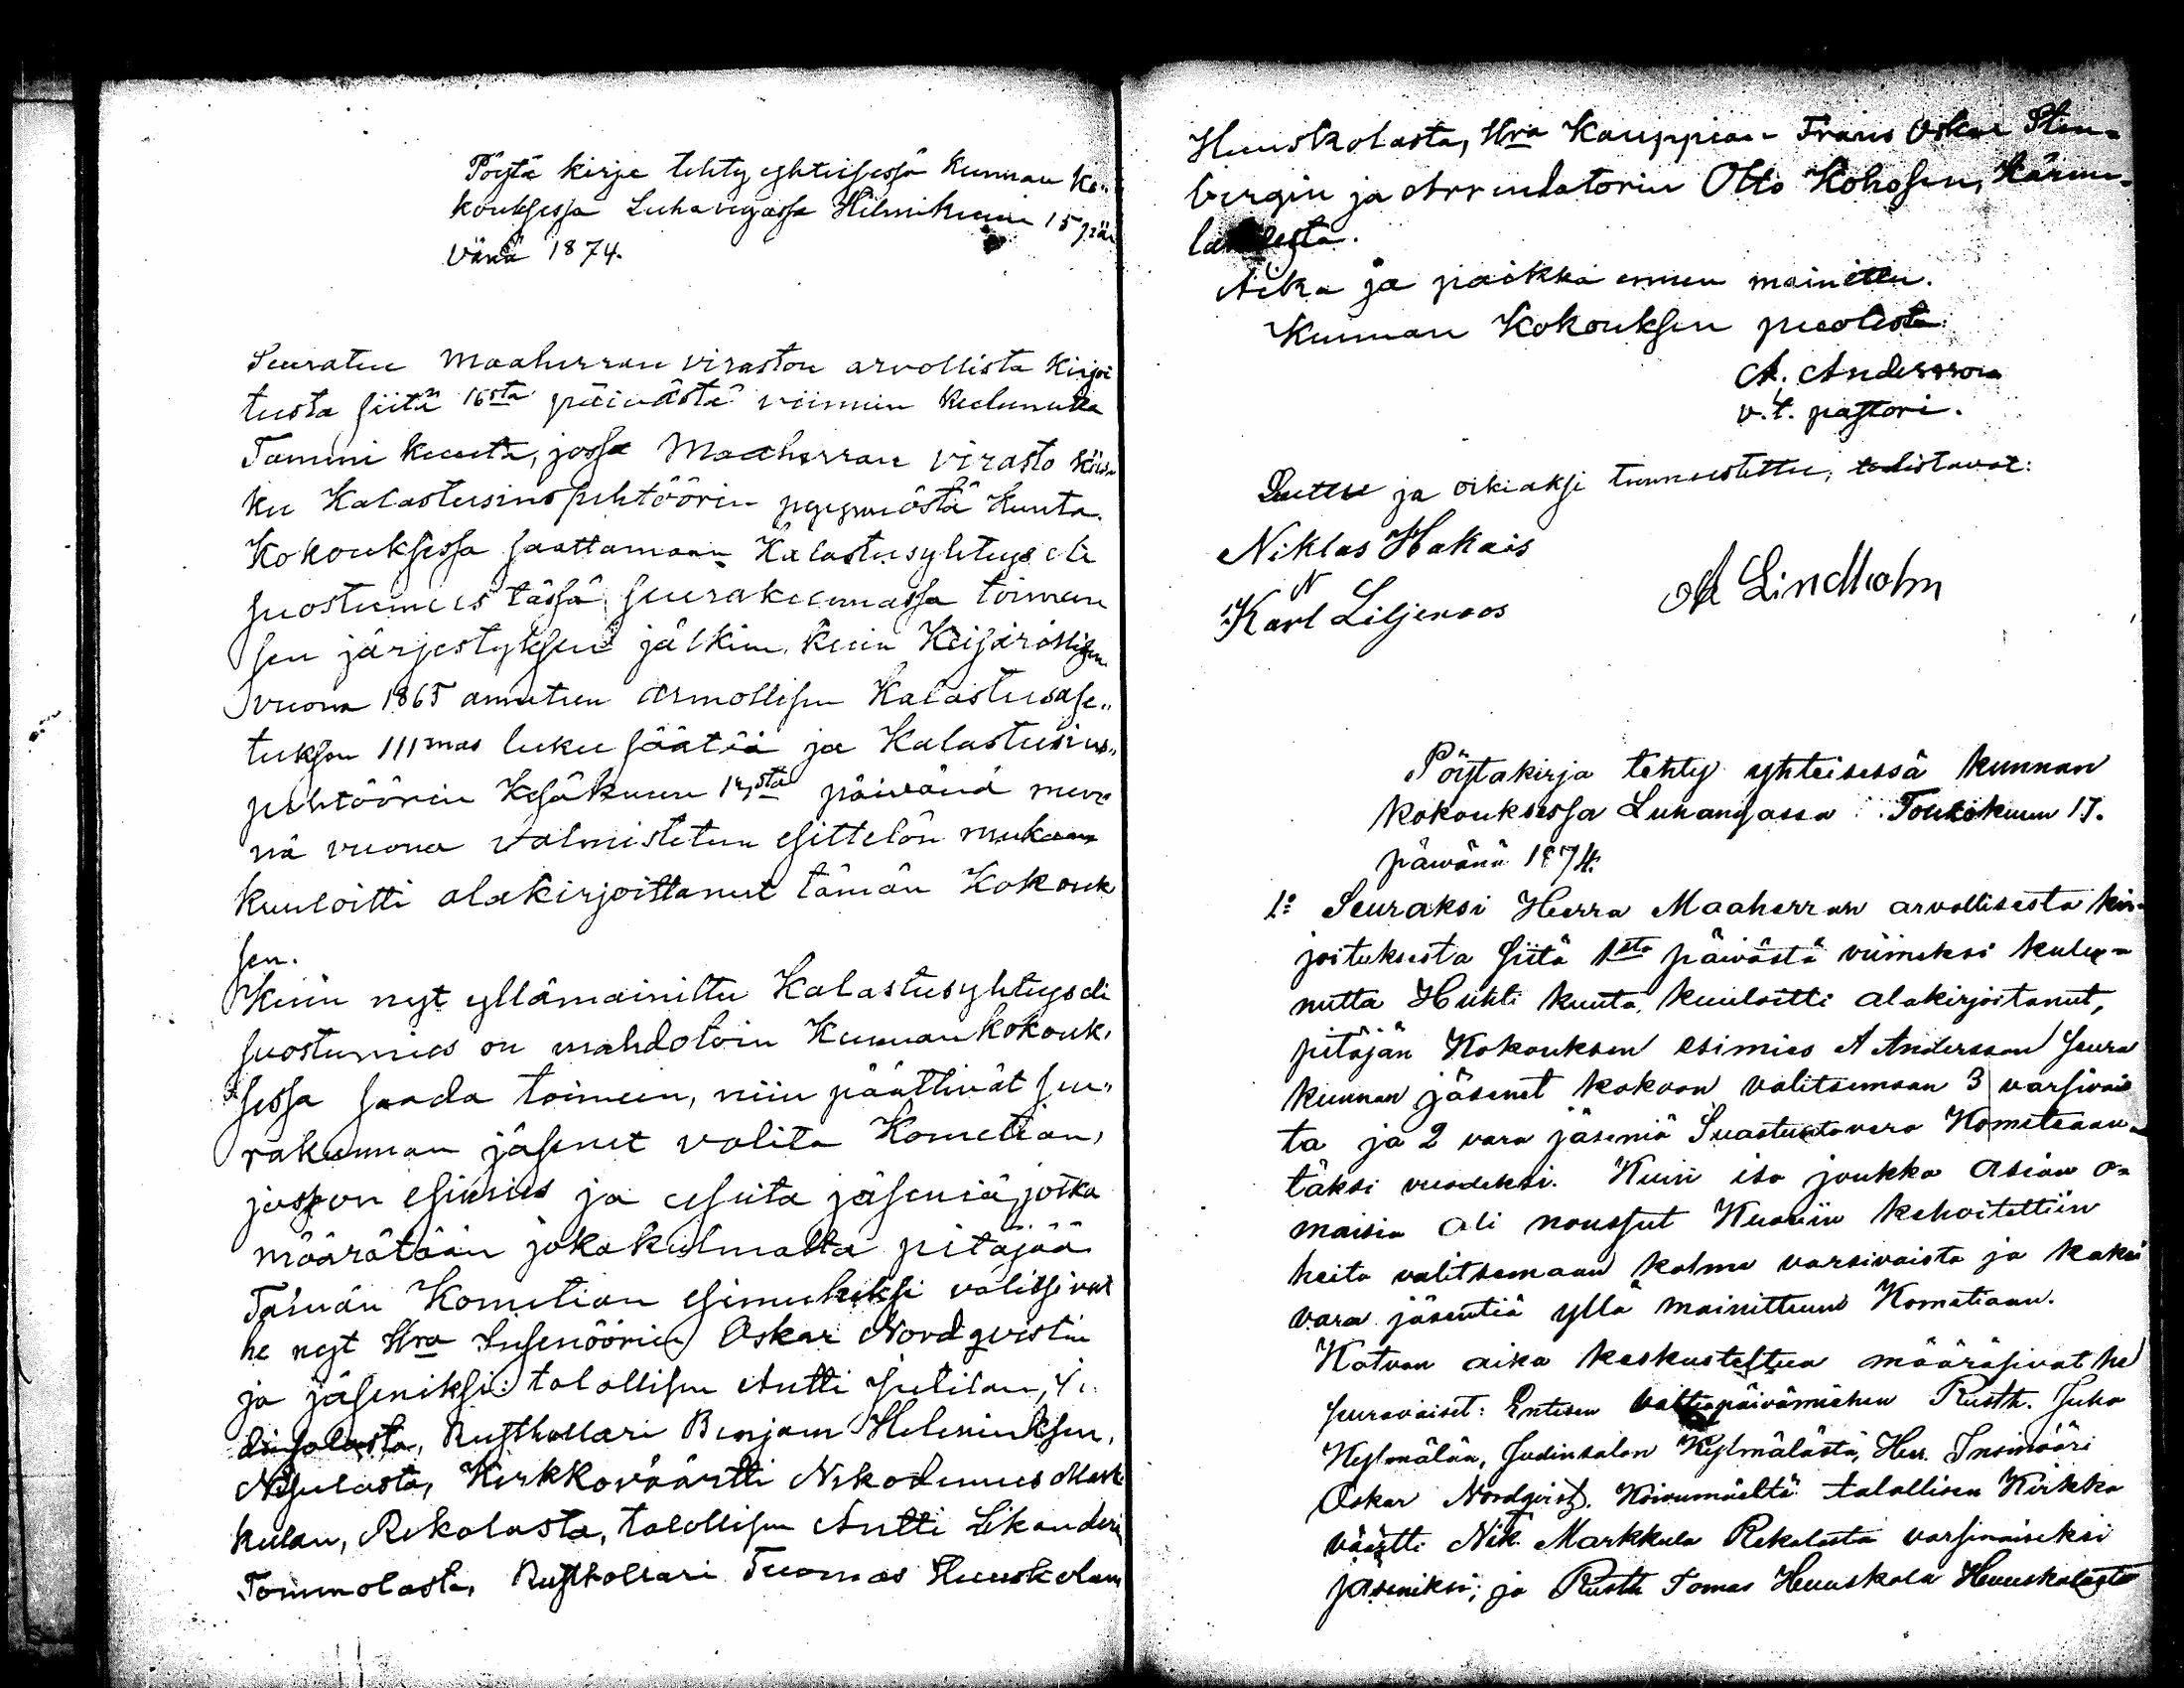 Pöytä kirja tehty yhteisessä Kunnan Ko„
kouksessa Luhangassa Helmikuun 15 päi
vänä 1874.
Seuraten Maaherran viraston arvollista Kirjoi
tusta siitä 16sta päivästä viimein kulunutta
Tammi kuuta, jossa Maaherran virasto käs
ku Kalastusinspehtöörin pyynnöstä Kunta
Kokouksessa saattamaan Kalastusyhteys eli
suostumus tässä seurakunnassa toimeen
sen järjestyksen jälkeen kuin Keisarillisen
vuonna 1865 annetun armollisen Kalastusase„
tuksen IIImas luku säätää ja Kalastusins„
pehtöörin Kesäkuun päivänä menn
nä vuonna valmistetun esittelön mukaan
kuuloitti alakirjoittanut tämän Kokouk
sen.
Kuin nyt yllämainittu Kalastusyhteys eli
suostumus on mahdotoin Kunnankokouk,
sessa saada toimeen, niin päättivät seu„
rakunnan jäsenet valita Kometian,
jossa on esimies ja useita jäseniä, jotka
määrätään joka kulmalta pitäjää
Tämän Kometian esimieheksi valitsivat
he nyt Hra Insenöörin Oskar Nordqvistin
ja jäseniksi: talollisen Antti Jutilan,
Rusthollari Benjam Heleniuksen,
Nisulasta, Kirkkoväärtti Nikodemus Mark
kulan, Rekolasta, talollisen Antti Likanderi
Tommolasta, Rusthollari Tuomas Huuskolan
Huuskolasta, Hra Kauppias Frans Oskar Sten„
bergin ja Arrendatorin Otto Kohosen, Kärme„
Aika ja paikka ennen mainittu.
Kunnan Kokouksen puolesta:
A. Andersson
v.t. pastori.
Luettu ja oikiaksi tunnustettu, todistavat:
Niklas Hakais
N
Karl Liljeroos
A Lindholm
Pöytakirja tehty yhteisessä kunnan
kokouksessa Luhangassa Toukokuun 17.
päivänä 1874.
1:o Seuraksi Herra Maaherran arvollisesta kir-
joituksesta siitä 1sta päivästä viimeksi kulu-
nutta Huhti kuuta, kuuloitti alakirjoitanut,
pitäjän Kokouksen esimies A Andersson seura
kunnan jäsenet kokoon valitsemaan 3 varsivais
ta ja 2 vara jäseniä Suostuntavero Kometeaan
täksi vuodeksi. Kuin iso joukko asian o-
maisia oli noussut Kuoriin kehoitettiin
heitä valitsemaan kolme varsivaista ja kaksi
vara jäsentiä yllä mainittuun Kometiaan.
Kotvan aika keskusteltua määräsivat he
seuravaiset: Entisen valtiopäivämiehen Rusth. Juho
Kylmälän, Judinsalon Kylmälästä, Herr. Insinööri
Oskar Nordqvist, Koivumäeltä talollisen Kirkko
väärtti Nik. Markkula Rekolasta varsinaiseksi
jäseniksi; ja Rusth Tomas Huuskola Huuskolasta